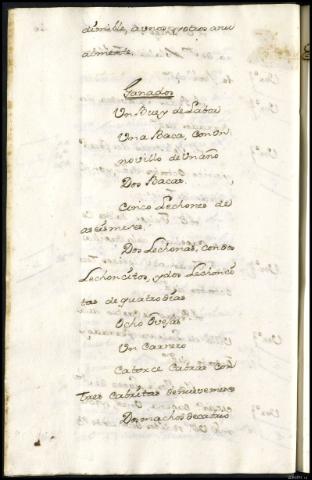 dimible, a unos y otros anu
almente.
Ganados
Un Buey de Labor
Una Baca, con Un
novillo de Un año
Dos Bacas.
Cinco Lechones de
a seis meses.
Dos Lechonas, con dos
Lechoncitos, y dos Lechonci
tas de quatro dias
Ocho Ovejas
Un Carnero
Catorce Cabras con
Tres Cabritas de nueve meses
Dos machos de cabrio